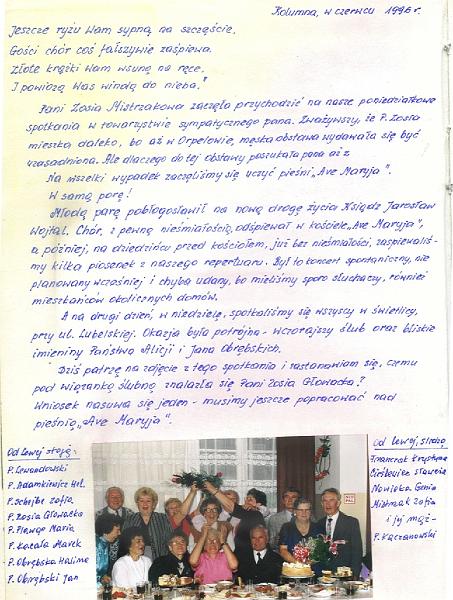 Kolumna, w czerwcu 1996 r.
Jeszcze ryżu Wam sypną na szczęście,
Gości chór coś fałszywie zaśpiewa.
Złote krążki Wam wsuną na ręce,
I powiozą Was windą do nieba."
Pani Zosia Mistrzakowa zaczęła przychodzić na nasze poniedziałkowe
spotkania w towarzystwie sympatycznego pana. Zważywszy, że P. Zosia
mieszka daleko, bo aż w Orpelowie, męska obstawa wydawała się być
uzasadniona. Ale dlaczego do tej obstawy poszukała pana aż z
Na wszelki wypadek zaczęliśmy się uczyć pieśni „Ave Maryja".
W samą porę!
Młodą parę pobłogosławił na nową drogę życia Ksiądz Jarosław
Wojtal. Chór, z pewną nieśmiałością, odśpiewał w kościele „Ave Maryja",
a później, na dziedzińcu przed kościołem, już bez nieśmiałości, zaspiewaliś-
my kilka piosenek z naszego repertuaru. Był to koncert spontaniczny, nie
planowany wcześniej i chyba udany, bo mieliśmy sporo słuchaczy, również
mieszkańców okolicznych domów.
A na drugi dzień, w niedzielę, spotkaliśmy się wszyscy w świetlicy,
przy ul. Lubelskiej. Okazja była potrójna - wczorajszy ślub oraz bliskie
imieniny Państwa Alicji i Jana Obrębskich.
Dziś patrzę na zdjęcie z tego spotkania i zastanawiam się, czemu
pod wiązanką ślubną znalazła się Pani Zosia Głowacka?
Wniosek nasuwa się jeden - musimy jeszcze popracować nad
pieśnią „Ave Maryja".
Od lewej stoją:
P. Lewandowski
P. Adamkiewicz Hel.
P. Schejbt Zofia
P. Zosia Głowacka
P. Plewgo Maria
P. Kazała Marek
P. Obrębska Halina
P. Obrębski Jan
Od lewej, siedzą
Franczak Krystyna
Cieślewicz Sławcia
Nowicka Genia
Mistrzak Zofia
i jej mąż -
P. Kączanowski